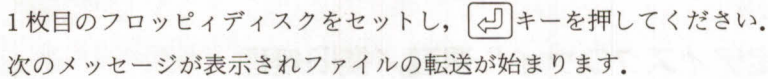 1枚目のフロッピィディスクをセットし，⏎キーを押してください．
次のメッセージが表示されファイルの転送が始まります．